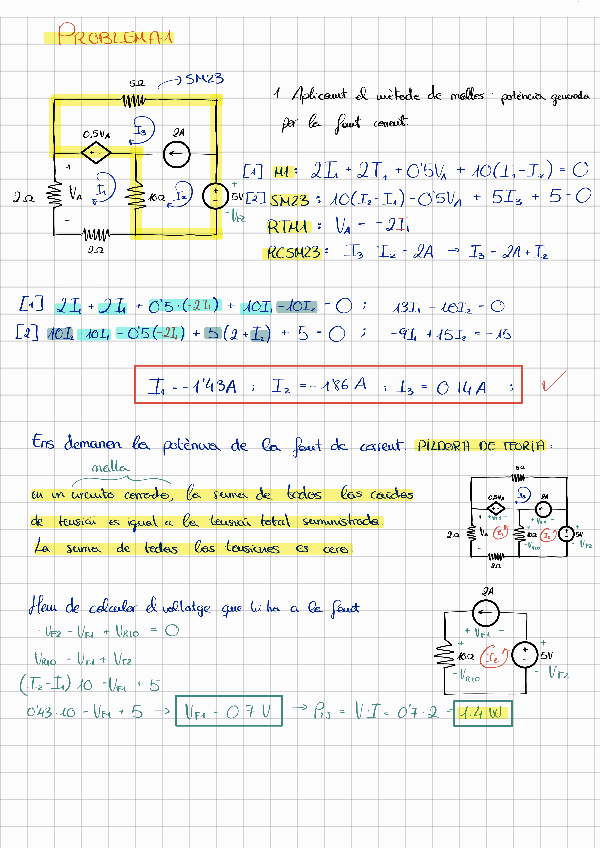 PROBLEMA 1
5Ω → SM23
1 Aplicant el mètode de malles: potència generada
per la font corrent.
0,5VA
I3
2A
2Ω
VA
I1
10Ω
I2
5V
-VF2
2Ω
[1] M1: 2I1 + 2I1 + 0'5VA + 10(I1-I2) = 0
[2] SM23: 10(I2-I1) - 0'5VA + 5I3 + 5 = 0
RTM1: VA = -2I1
RCSM23: I3 - I2 = 2A → I3 = 2A + I2
[1] 2I1 + 2I1 + 0'5·(-2I1) + 10I1 - 10I2 = 0 ; 13I1 - 10I2 = 0
[2] 10I2 - 10I1 - 0'5(-2I1) + 5(2+I2) + 5 = 0 ; -9I1 + 15I2 = -15
I1 = -1'43A ; I2 = -1'86A ; I3 = 0'14A ; ✓
Ens demanen la potència de la font de corrent. PÍLDORA DE TEORIA:
malla
en un circuito cerrado, la suma de todas las caídas
de tensión es igual a la tensión total suministrada.
La suma de todas las tensiones es cero.
5Ω
0,5VA
I3
2A
+ VF1 -
2Ω
VA
I1
10Ω
I2
5V
VF2
-VR10
2Ω
Hem de calcular el voltatge que hi ha a la font
-VF2 - VF1 + VR10 = 0
VR10 - VF1 + VF2
(I2-I1)10 - VF1 + 5
0'43·10 - VF1 + 5 → VF1 = 0'7V → P2A = V·I = 0'7·2 = 1.4W
2A
+ VF1 -
10Ω
I2
5V
-VR10
-VF2